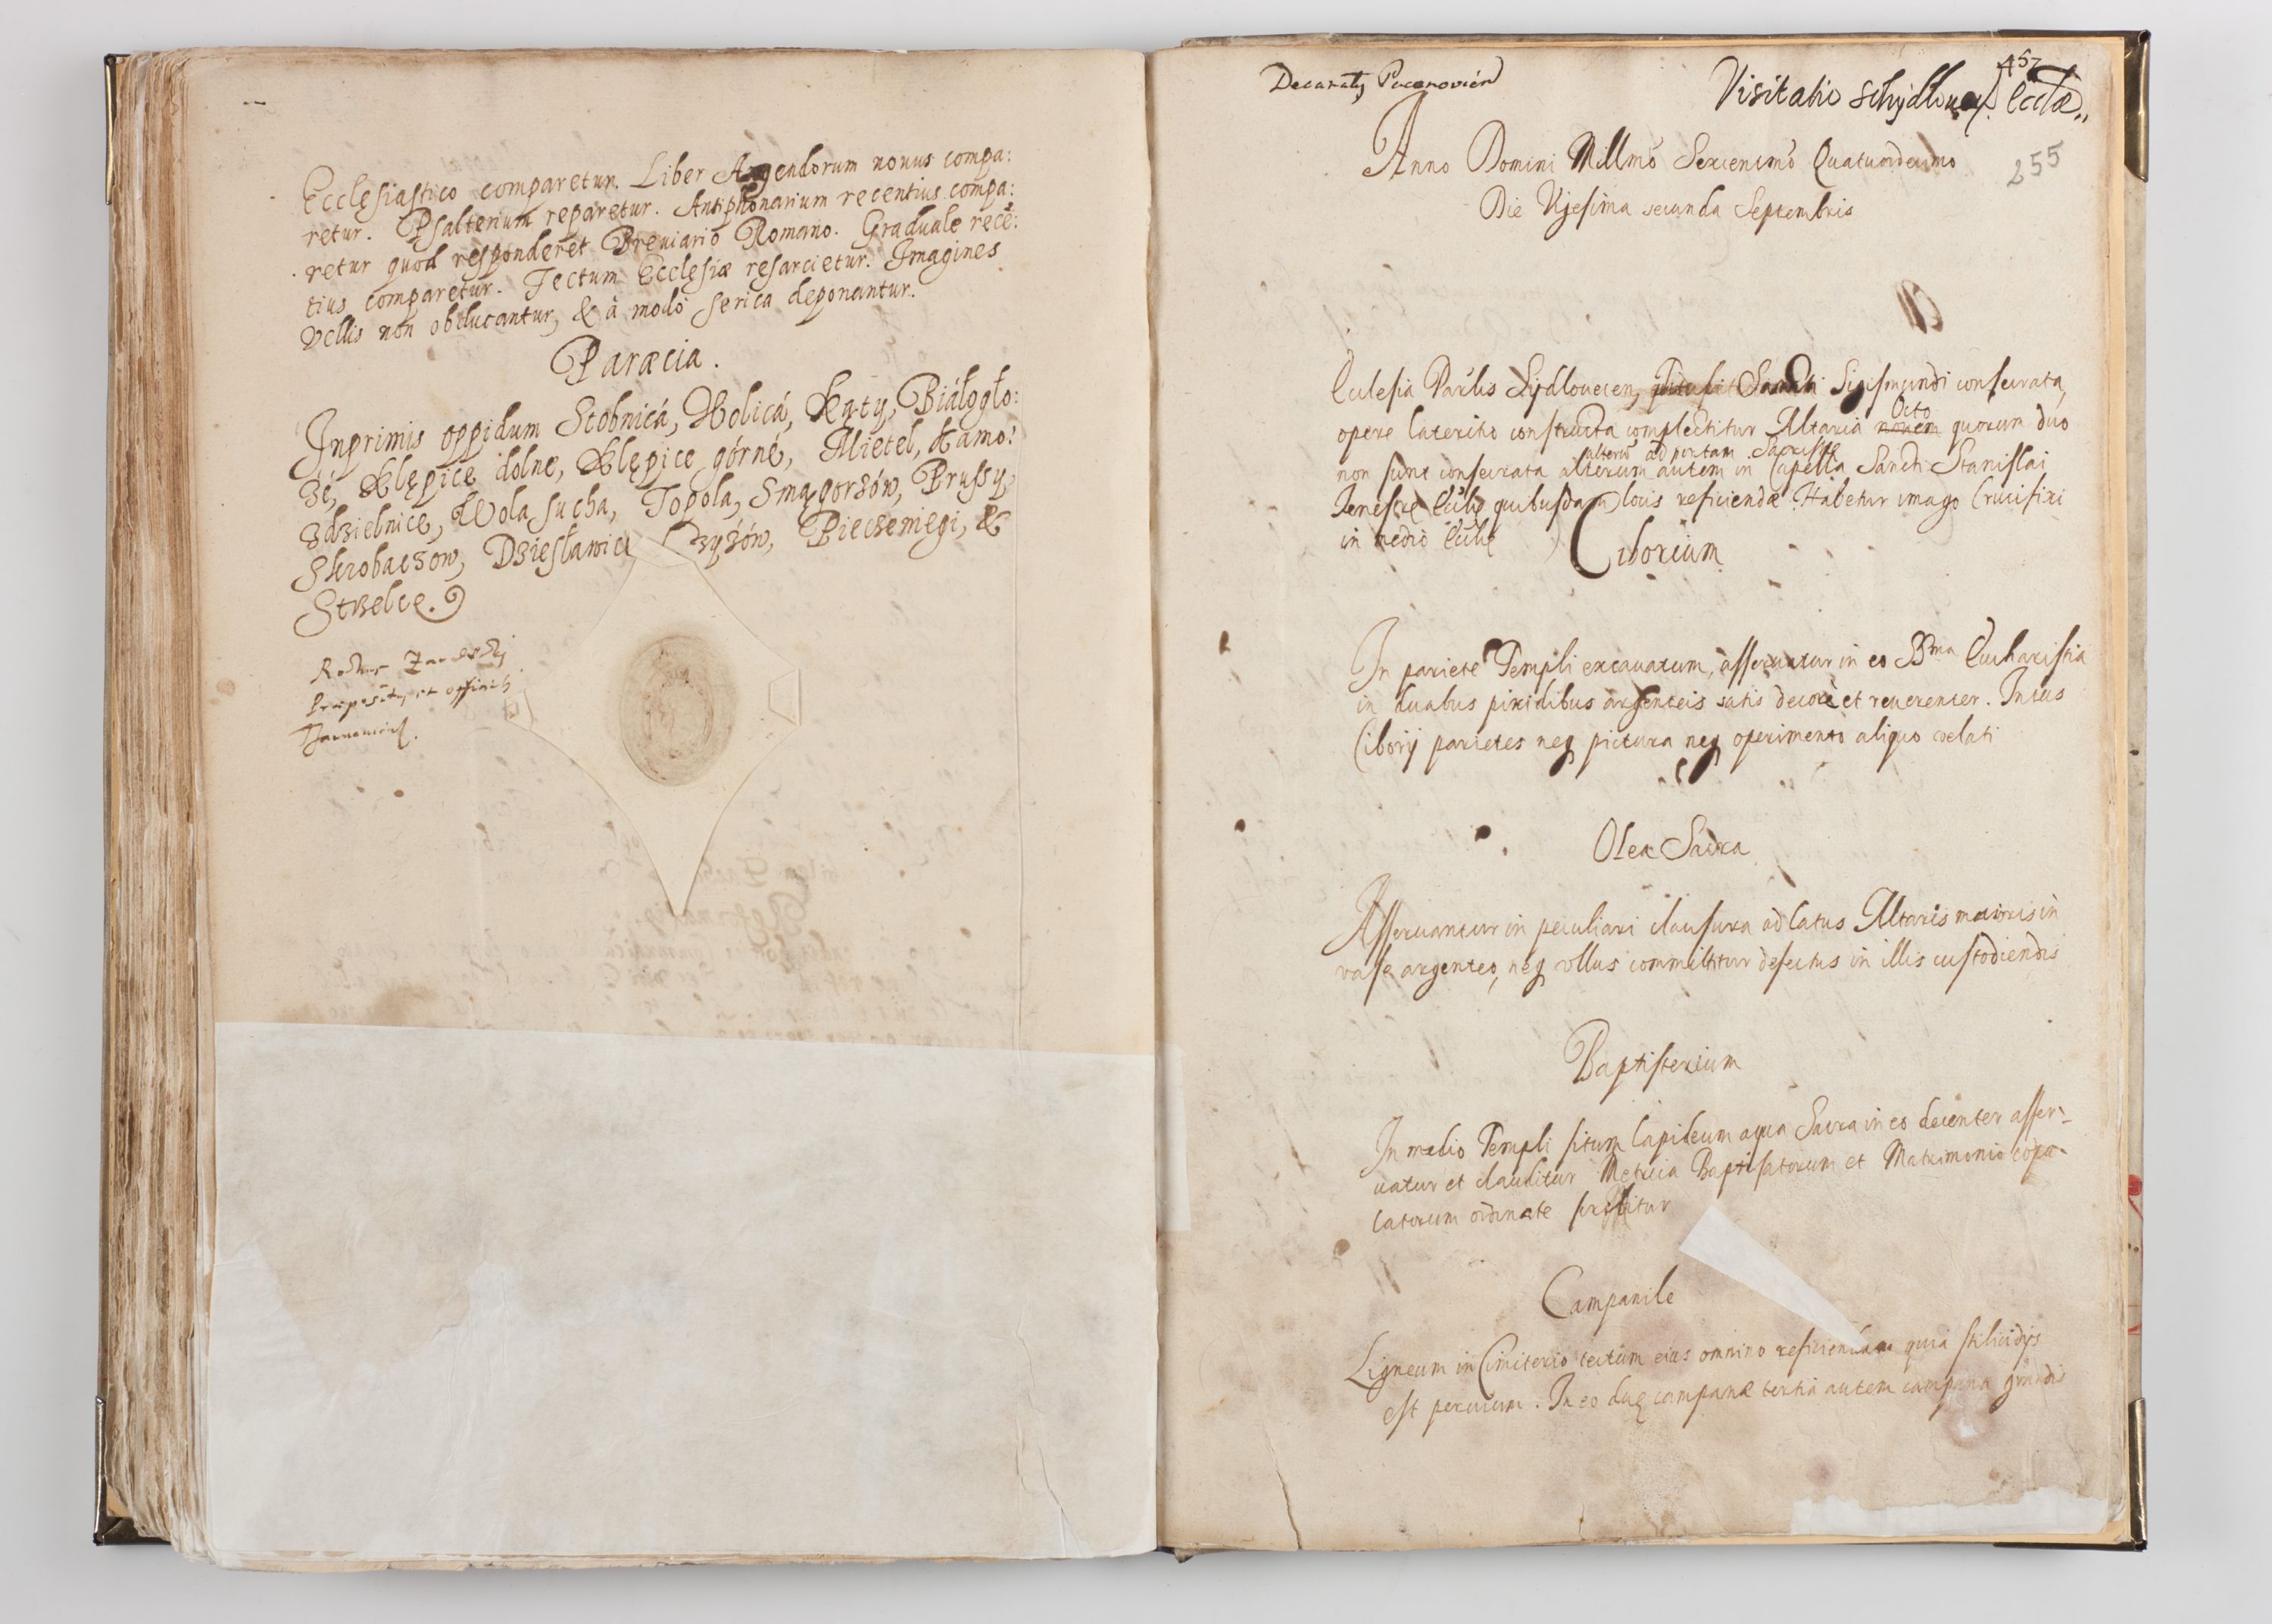 Ecclesiastico comparetur. Liber Agendorum nouus compa:
retur. Psalterium reparetur. Antiphonarium recentius compa:
retur quod responderet Breuiario Romano. Graduale recē:
tius comparetur. Tectum Ecclesiæ resarcietur. Imagines
Vellis non obducantur, & à modò serica deponantur.
Paræcia.
Inprimis oppidum Stobnicá, Wolicá, Kąty, Biáłogło:
zé, Klępice dolne, Klępice górné, Mietel, Kamo:
Wola sucha, Topola, Smągorzów, Prussy,
Skrobaczow, Dziesławice Czyżów, Bieczeniegi, &
Strzelce.
Præpositus et officialis
457
Decanatus Pacanovien
Visitatio Schydlouen. Eccłæ
Anno Domini Millmo Sexcentmo Quatuordecimo
255
Die Vigesima secunda Septembris
Ecclesia Parłis Sydlouecen, Sancti Sigismundi consecrata,
Octo
opere lateritio constructa complectitur Altaria novem quorum duo
alterū ad portam Sacristiæ
non sunt consecrata alterum autem in Capella Sancti Stanislai
Fenestræ Ecclę quibusdam locis reficiendæ. Habetur imago Crucifixi
in medio Ecclę
Ciborium
In pariete Templi excauatum, asseruatur in eo BSma Eucharistia
in duabus pixidibus argenteis satis decorè et reuerenter. Intus
Ciborij parietes neq pictura neq operimento aliquo velati
Olea Sacra
Asseruantur in peculiari clausura ad latus Altaris maioris in
vase argenteo, neq vllus committitur defectus in illis custodiendis
Baptisterium
In medio Templi situm lapideum aqua Sacra in eo decenter asser-
uatur et clauditur Metrica Baptisatorum et Matrimonio copu-
latorum ordinate scribitur
Campanile
Ligneum in Cimiterio tectum eius omnino reficiendum quia stilicidijs
est peruium. In eo duę campanæ tertia autem campana grandis